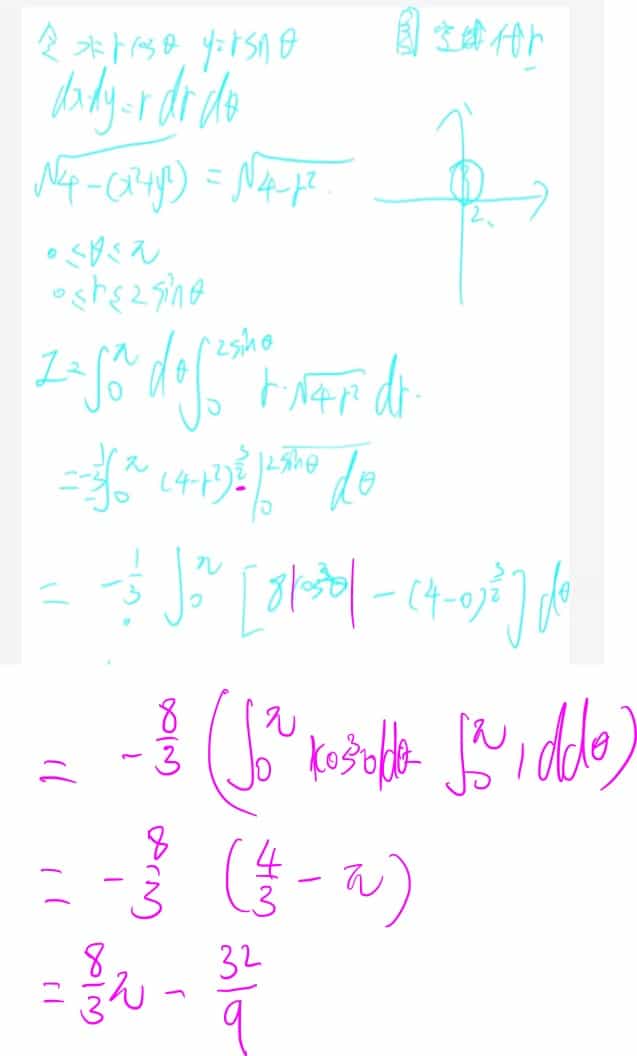 令 x=rcosθ y=rsinθ
dxdy=rdrdθ
√4-(x²+y²) = √4-r².
2.
0≤θ≤π
0≤r≤2sinθ
I=∫₀^π dθ∫₀^{2sinθ} r·√4-r² dr.
=-1/3∫₀^π (4-r²)^{3/2}|₀^{2sinθ} dθ
= -1/3 ∫₀^π [8|cos³θ|-(4-0)^{3/2}]dθ
= -8/3 (∫₀^π |cos³θ|dθ-∫₀^π 1 dθ)
= -8/3 (4/3-π)
= 8/3π - 32/9